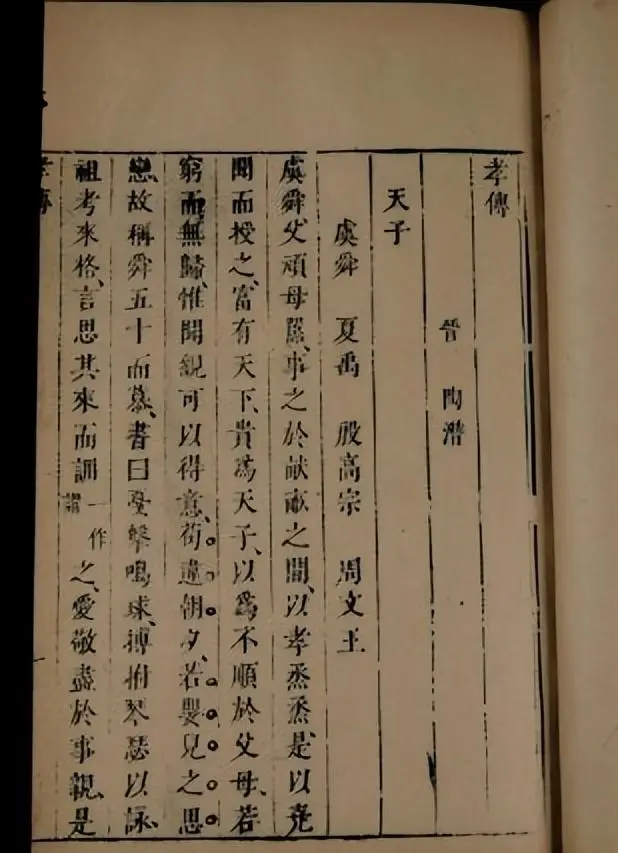 孝傳
晉 陶潛
天子
虞舜 夏禹 殷高宗 周文王
虞舜父頑母嚚、事之於畎畝之間、以孝烝烝、是以堯
聞而授之、富有天下、貴爲天子、以爲不順於父母、若
窮而無歸、惟聞親可以得意、苟違朝夕、若嬰兒之思
戀、故稱舜五十而慕、書曰戛擊鳴球、搏拊琴瑟以詠、
祖考來格、言思其來而訓一作謂之、愛敬盡於事親、是